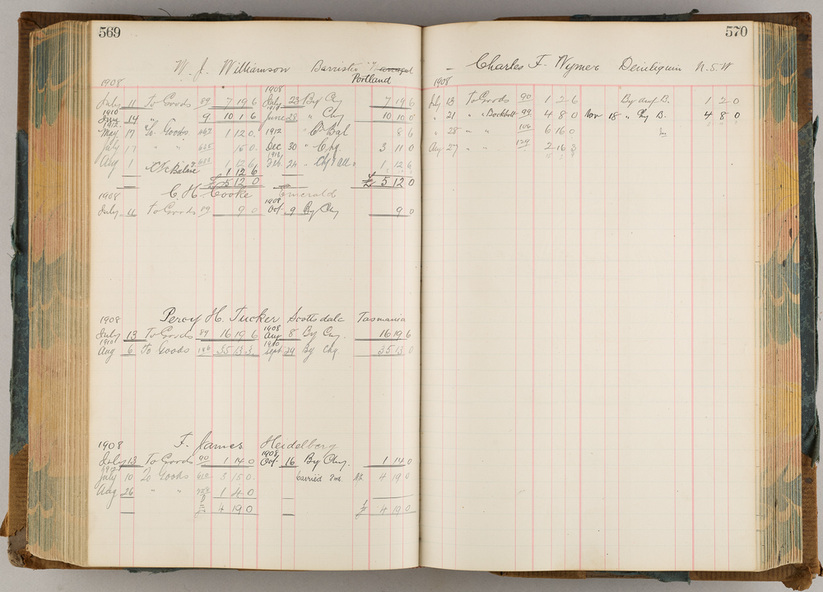 569
W. J. Williamson Barrister
Portland
1908 1908
July 11 To Goods 89 7 19 6 July 28 By Chq 7 19 6
1910 1910
14 9 10 1 6 June 28 " Chq 10 10 0
May 19 To Goods 1 12 0 1912 " Bal 8 6
July 17 " " 15 0 Dec 30 " Chq 3 11 0
Aug 1 1 12 6 Feb 26 " Chq 1 12 6
1 12 6
£ 5 12 0 £ 5 12 0
C. H. Cooke Emerald
1908 1908
July 11 To Goods 89 9 0 Oct 9 By Chq 9 0
Percy H. Tucker Scottsdale Tasmania
1908 1908
July 13 To Goods 89 16 19 6 Aug 8 By Chq 16 19 6
1910 1910
Aug 6 To Goods 35 13 3 Sept 29 By Chq 35 13 0
F. James Heidelberg
1908 1908
July 13 To Goods 90 1 14 0 Oct 16 By Chq 1 14 0
July 10 To Goods 3 15 0 Carried 4 19 0
Aug 26 " " 1 4 0
£ 4 19 0 £ 4 19 0
570
Charles F. Wymer Deniliquin N.S.W
1908
July 13 To Goods 90 1 2 6 By 1 2 0
" 21 " " 99 4 8 0 Nov 18 " By B. 4 8 0
" 28 " " 106 6 16 0
Aug 27 " " 129 2 16 3